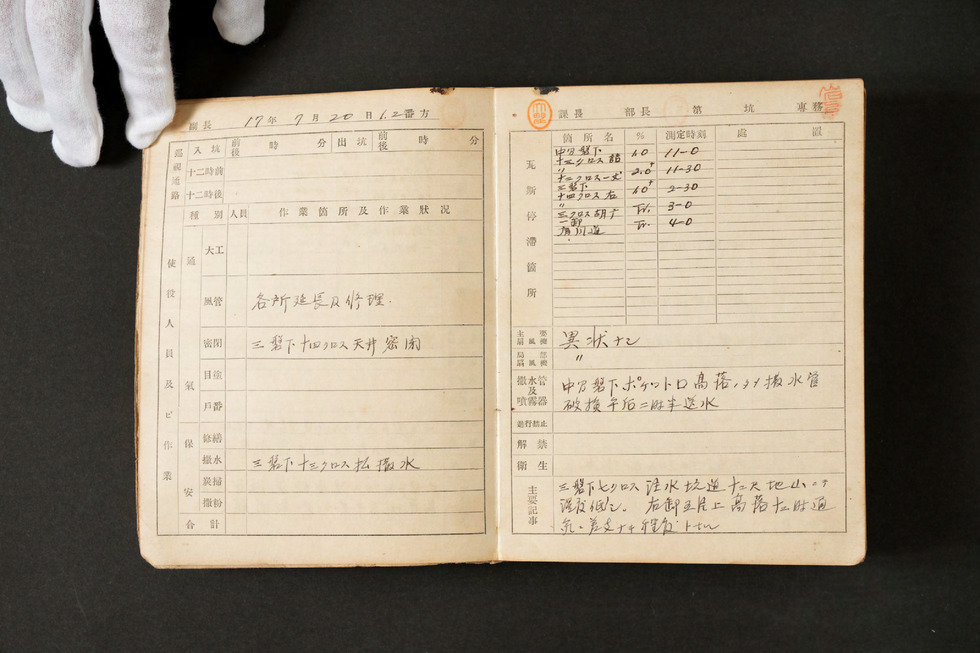 組長 17年 7月 20日 1.2番方
巡視通路 入坑 前後 時 分 出坑 前後 時 分
十二時前
十二時後
種別 人員 作業箇所及作業狀况
使役人員及ビ作業
通氣
大工
風管 各所延長及修理.
密閉 三盤下十四クロス天井密閉
目塗
戶番
保安
修繕
撒水 三盤下十三クロス払撒水
炭掃
撒粉
合計
課長 部長 第 坑 専務
瓦斯停滞箇所
箇所名 % 測定時刻 處置
中乃盤下
十三クロス 1.0 11-0
〃
十二クロス 2.0+ 11-30
三盤下
十四クロス右 1.0+ 2-30
〃
三クロス Tr. 3-0
一卸
Tr. 4-0
主要扇風機 異狀ナシ
局部扇風機 〃
撒水管及噴霧器 中乃盤下ポケット口高落ノタメ撒水管
破損午后二時半送水
進行禁止
解禁
衛生
主要記事 三盤下七クロス注水坑道十二尺地山ニテ
湿度低シ. 右卸五片上高落十二時通
気ニ差支ナキ程度トナシ